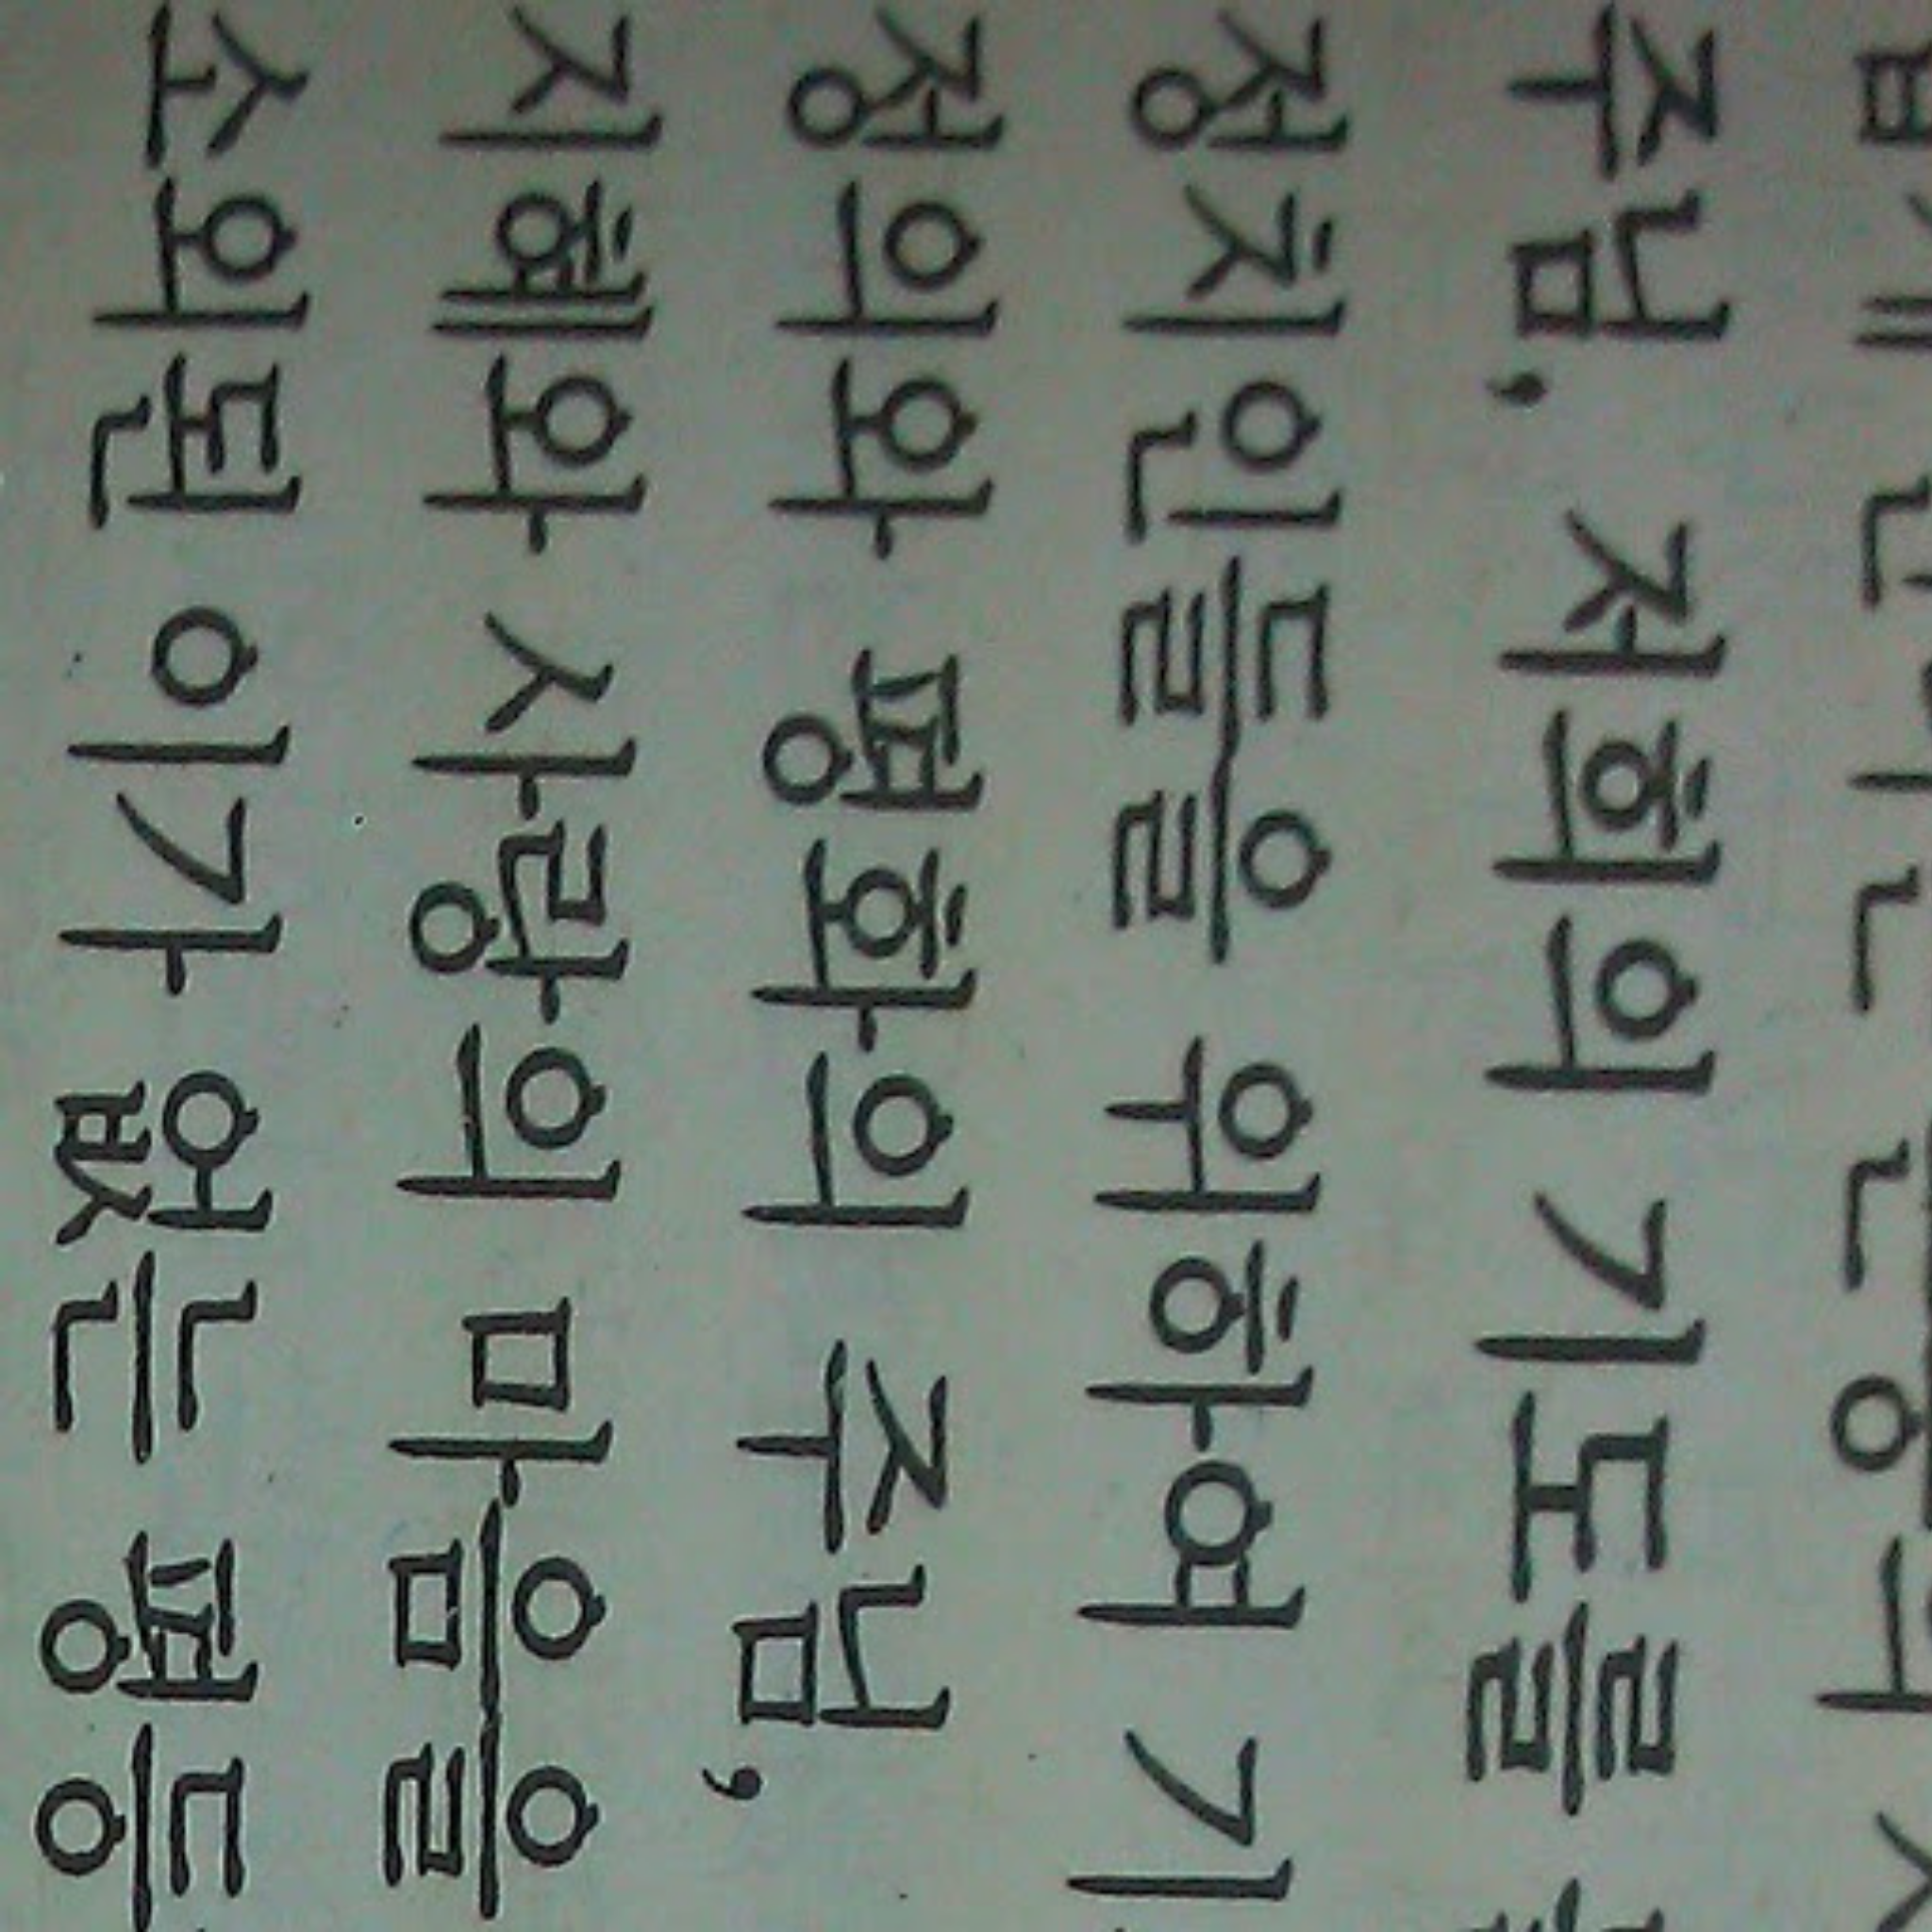 주님, 저희의 기도를
정치인들을 위하여 기
정의와 평화의 주님,
지혜와 사랑의 마음을
소외된 이가 없는 평등